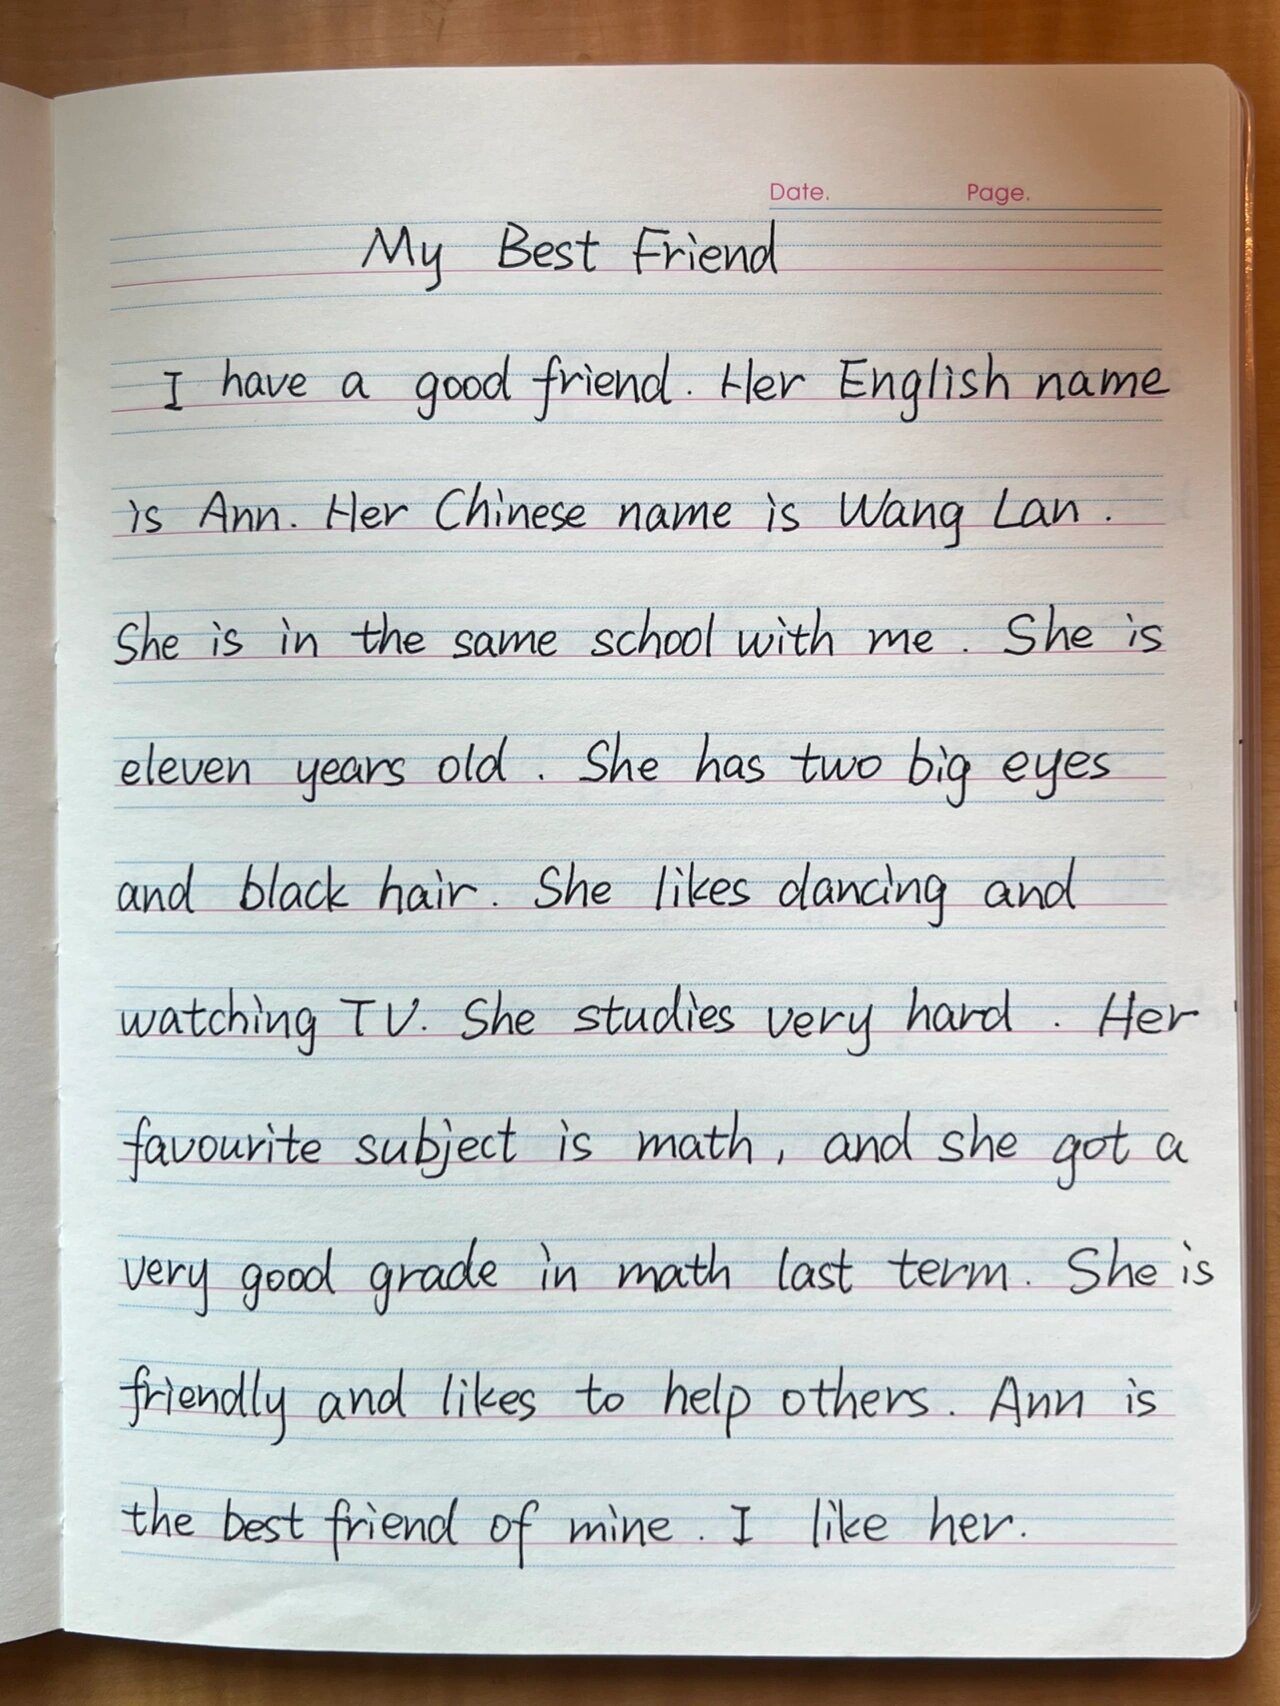 Date. Page.
My Best Friend
I have a good friend. Her English name
is Ann. Her Chinese name is Wang Lan.
She is in the same school with me. She is
eleven years old. She has two big eyes
and black hair. She likes dancing and
watching TV. She studies very hard. Her
favourite subject is math, and she got a
very good grade in math last term. She is
friendly and likes to help others. Ann is
the best friend of mine. I like her.